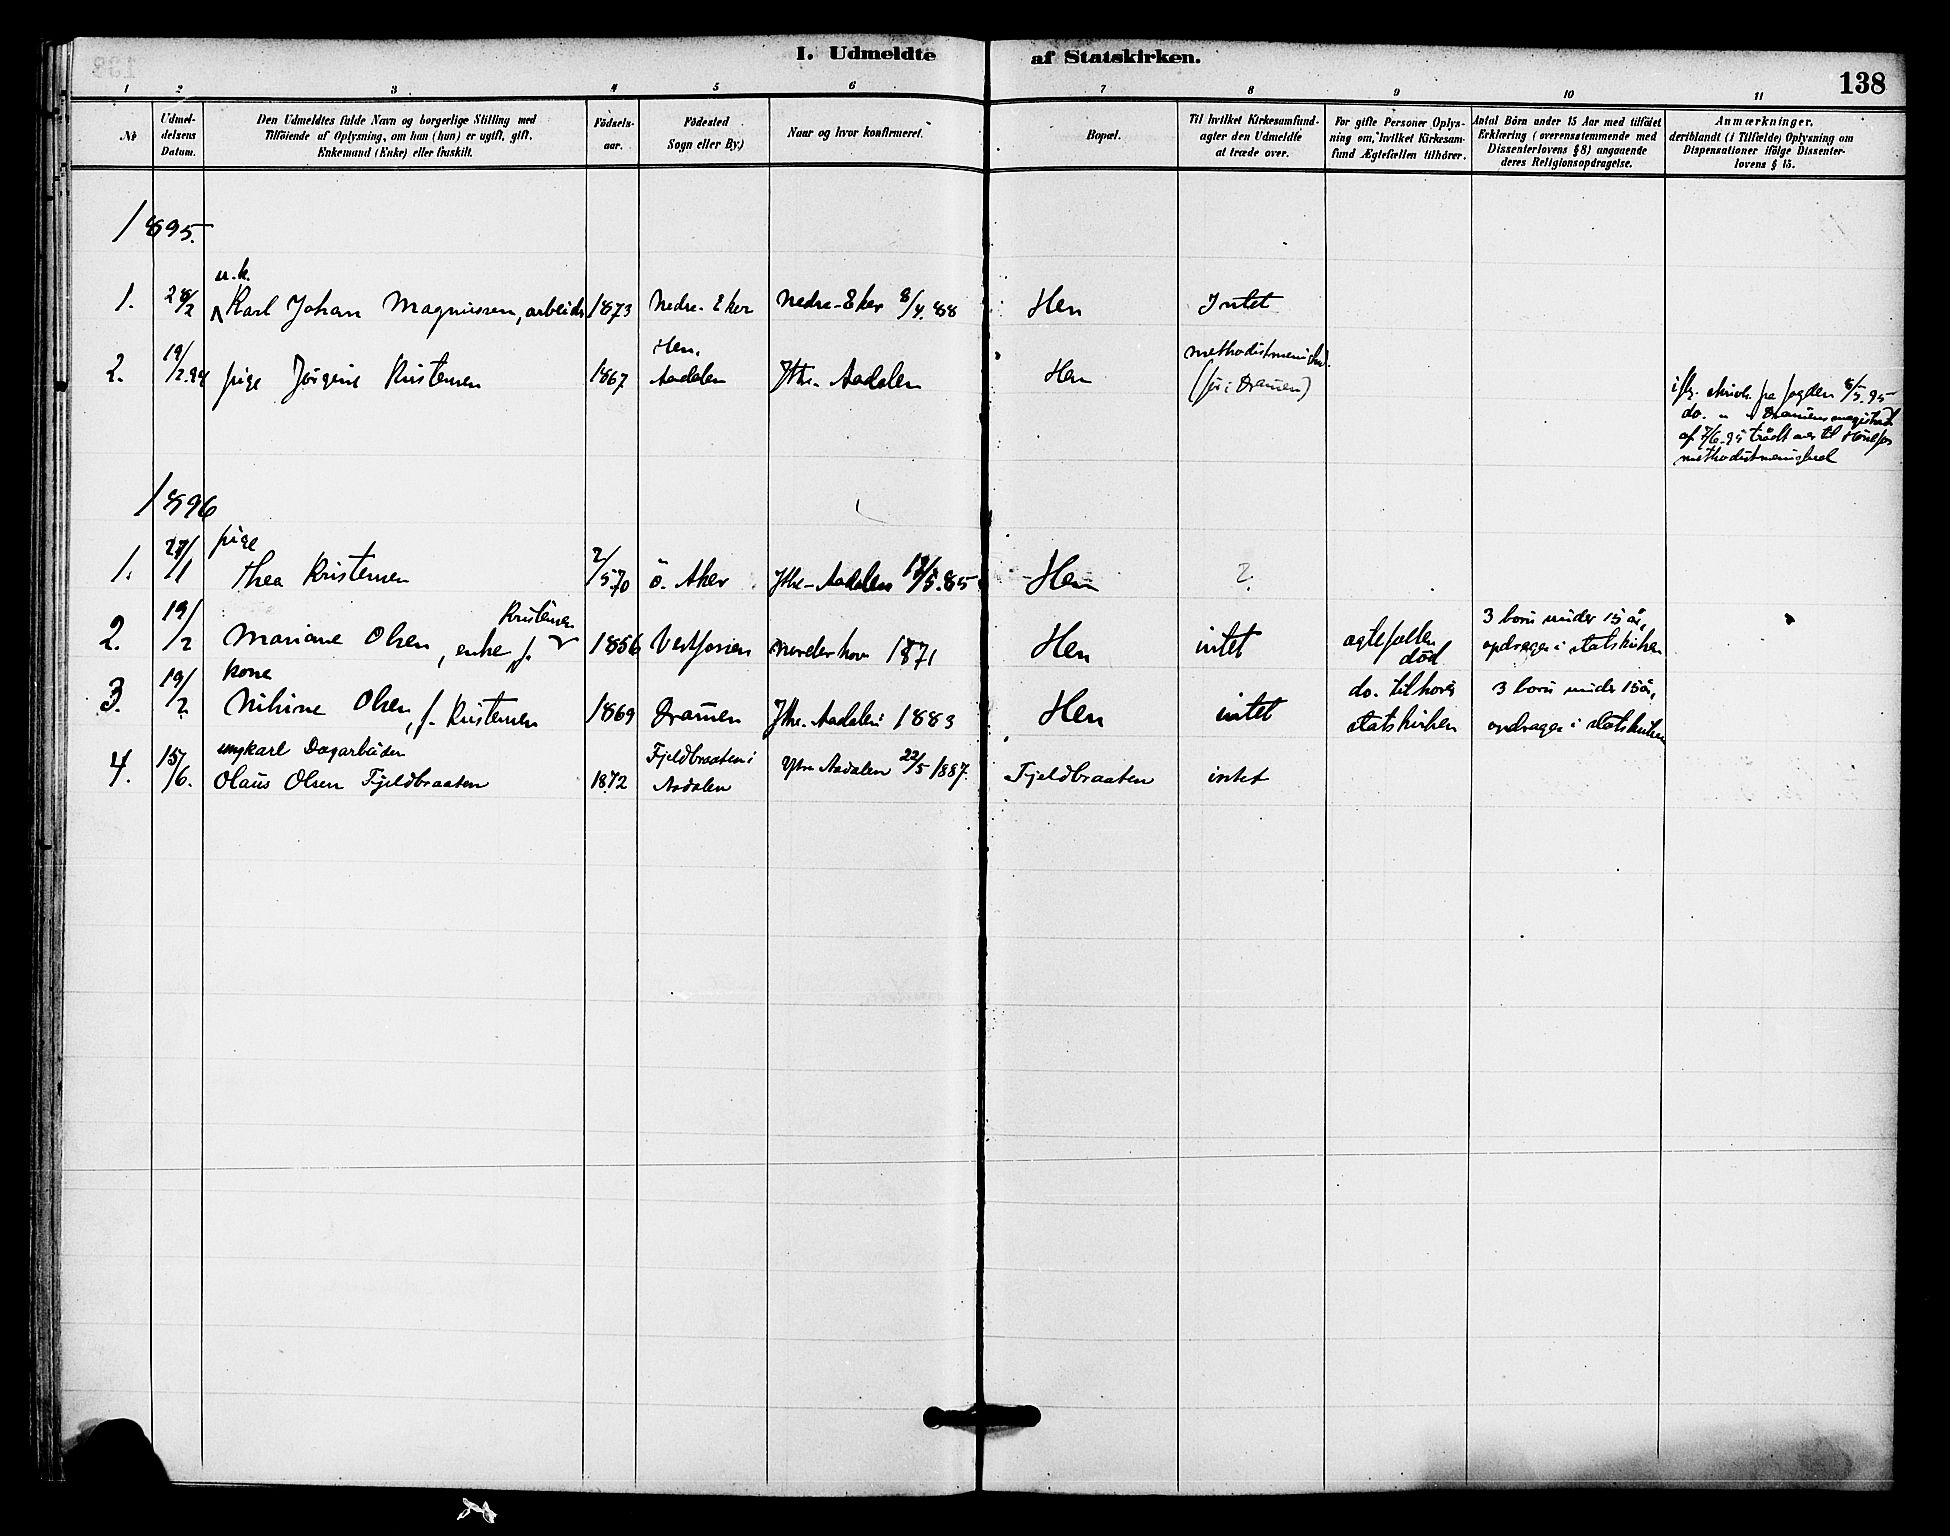 I. Udmeldte af Statskirken.
138
1 2 3 4 5 6 7 8 9 10 11
Nr.
Udmel-
delsens
Datum.
Den Udmeldtes fulde Navn og borgerlige Stilling med
Tilföiende af Oplysning, om han (hun) er ugift, gift,
Enkemand (Enke) eller fraskilt.
Födsels-
aar.
Födested
Sogn eller By.)
Naar og hvor konfirmeret.
Bopæl.
Til hvilket Kirkesamfund
agter den Udmeldte
at træde over.
For gifte Personer Oplys-
ning om, hvilket Kirkesam-
fund Ægtefællen tilhörer.
Antal Börn under 15 Aar med tilföiet
Erklæring (overensstemmende med
Dissenterlovens § 8) angaaende
deres Religionsopdragelse.
Anmærkninger,
deriblandt (i Tilfælde) Oplysning om
Dispensationer ifölge Dissenter-
lovens § 15.
1895.
u.k.
1. 28/2 Karl Johan Magnussen, arbeider 1873 Nedre-Eker Nedre-Eker 8/4.88 Hen Intet
2. 19/2.94 pige Jørgine Kristensen 1867 Hen, Aadalen Ytre-Aadalen Hen methodistmenighed.
(før i Dramen)
ifg. skriv. fra fogden 8/5.95
do. " " Dramens magistrat
af 7/6.95 trådt over til Hønefos
methodistmenighed
1896
pige
1. 27/1 Thea Kristensen 2/5.70 ö. Aker Ytre-Aadalen 17/5.85 Hen ?
Kristensen
2. 19/2 Mariane Olsen, enke f. 1856 Vestfossen Norderhov 1871 Hen intet ægtefællen
død
3 børn under 15 år,
opdrages i statskirken
kone
3. 19/2 Nikine Olsen, f. Kristensen 1869 Dramen Ytre Aadalen 1883 Hen intet do. tilhører
statskirken
3 børn under 15 år,
opdrages i statskirken
ungkarl Dagarbeider
4. 15/6. Olaus Olsen Fjeldbraaten 1872 Fjeldbraaten i
Aadalen
Ytre Aadalen 22/5 1887. Fjeldbraaten intet